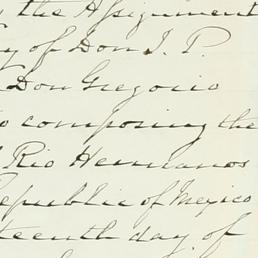 the Assignment
of Don J. P.
Don Gregorio
composing the
Rio Hermanos
Republic of Mexico
teenth day of